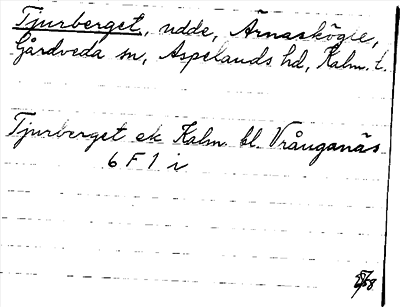 Tjurberget, udde, Ärnaskögle,
Gårdveda sn, Aspelands hd, Kalm. l.
Tjurberget ek Kalm bl. Vrånganäs
6 F 1 i